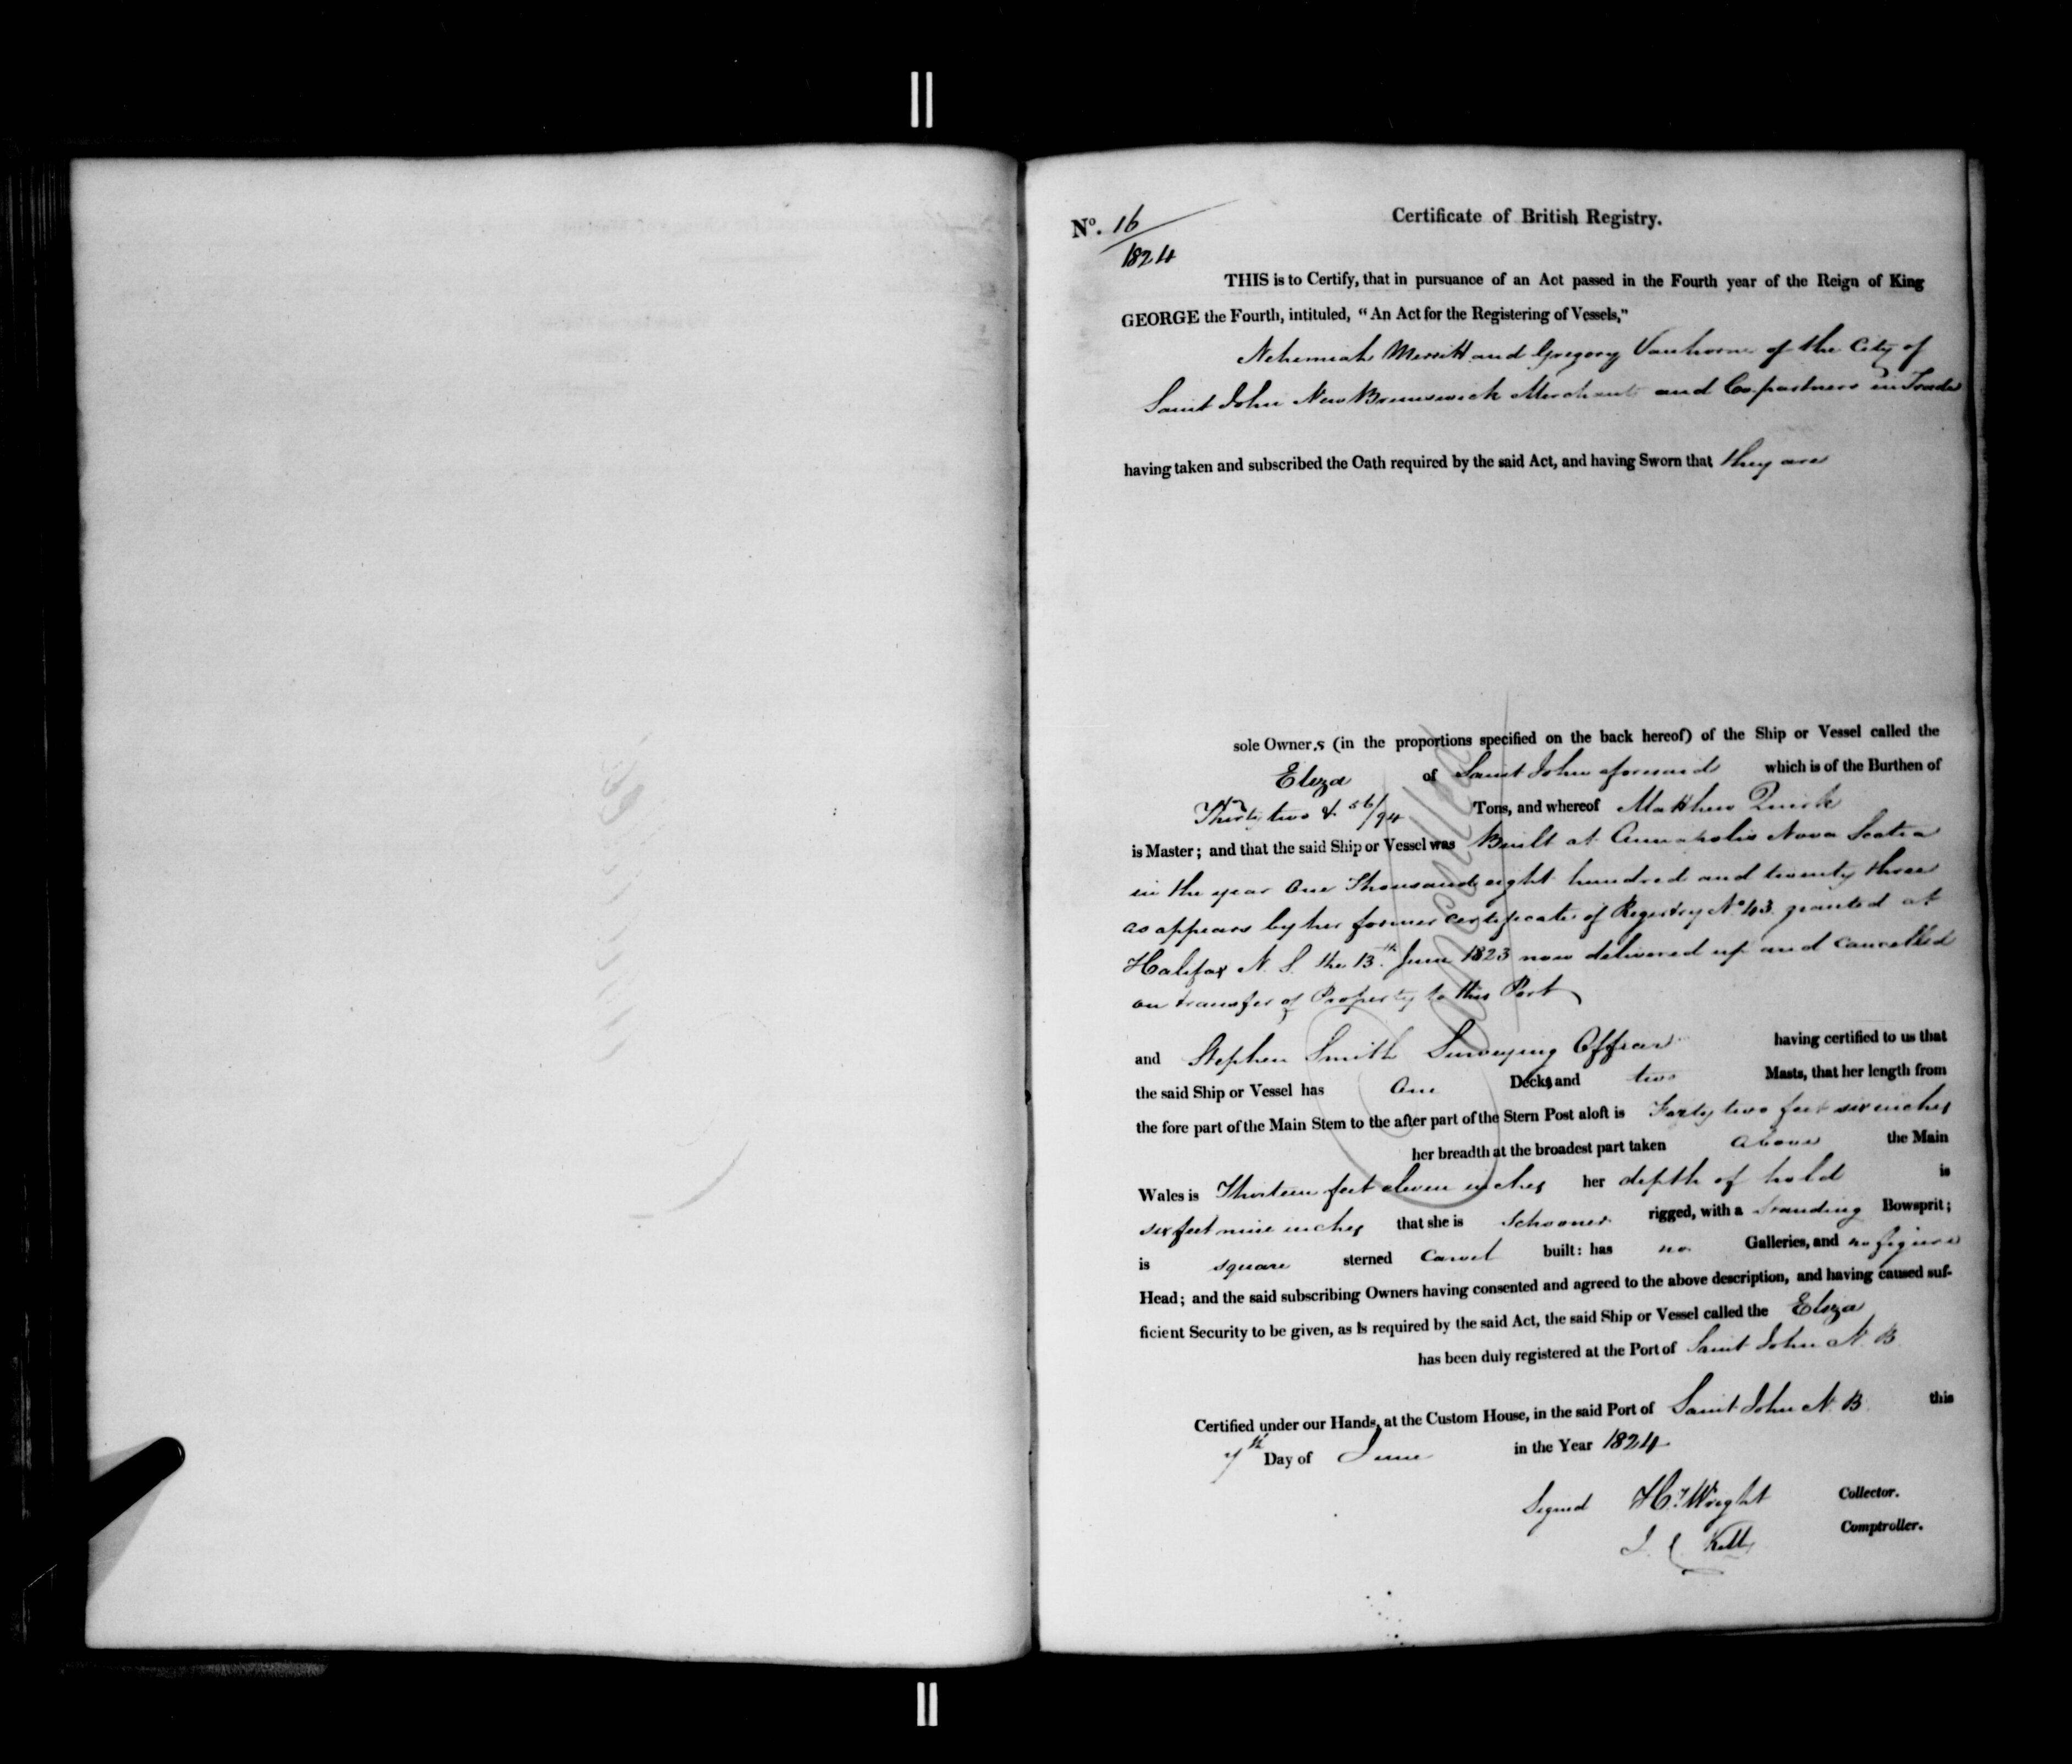 Certificate of British Registry.
No. 16
1824
THIS is to Certify, that in pursuance of an Act passed in the Fourth year of the Reign of King
GEORGE the Fourth, intituled, "An Act for the Registering of Vessels,"
Nehemiah Merritt and Gregory Vanhorne of the City of
Saint John New Brunswick Merchants and Copartners in Trade
having taken and subscribed the Oath required by the said Act, and having Sworn that they are
sole Owner,s (in the proportions specified on the back hereof) of the Ship or Vessel called the
Eliza of Saint John aforesaid which is of the Burthen of
Thirty two & 56/94 Tons, and whereof Matthew Quirk
is Master; and that the said Ship or Vessel was Built at Annapolis Nova Scotia
in the year One Thousand eight hundred and twenty three
as appears by her former certificate of Registry No. 43 granted at
Halifax N. S. the 13.th June 1823 now delivered up and cancelled
on transfer of Property to this Port
and Stephen Smith Surveying Officer having certified to us that
the said Ship or Vessel has One Decks and two Masts, that her length from
the fore part of the Main Stem to the after part of the Stern Post aloft is Forty two feet six inches
her breadth at the broadest part taken above the Main
Wales is Thirteen feet eleven inches her depth of hold is
six feet nine inches that she is Schooner rigged, with a standing Bowsprit;
is square sterned Carvel built: has no Galleries, and no figure
Head; and the said subscribing Owners having consented and agreed to the above description, and having caused suf-
ficient Security to be given, as is required by the said Act, the said Ship or Vessel called the Eliza
has been duly registered at the Port of Saint John N. B.
Certified under our Hands, at the Custom House, in the said Port of Saint John N. B. this
7th Day of June in the Year 1824
Signed Hy. Wright Collector.
Comptroller.
Cancelled